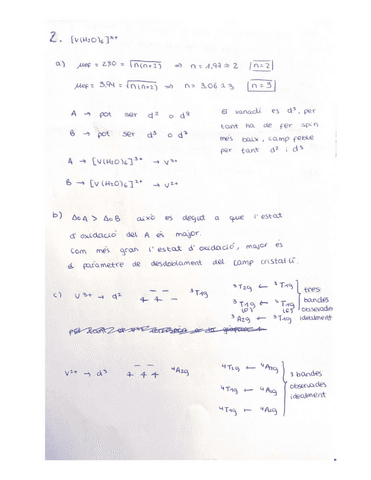 2. [V(H2O)6]ⁿ⁺
a) μef = 2.80 = √n(n+2) ⇒ n = 1,97 ≈ 2 [n=2]
μef = 3.94 = √n(n+2) ⇒ n = 3.06 ≈ 3 [n=3]
A → pot ser d² o d⁸
B → pot ser d³ o d⁷
El vanadi és d³, per
tant ha de fer spin
més baix, camp feble
per tant d² i d³
A → [V(H2O)6]³⁺ → V³⁺
B → [V(H2O)6]²⁺ → V²⁺
b) ΔoA > ΔoB això es degut a que l'estat
d'oxidació del A és major.
Com més gran l'estat d'oxidació, major és
el paràmetre de desdoblament del camp cristal·lí.
c) V³⁺ → d² ³T1g
³T2g ← ³T1g
³T1g (P) ← ³T1g (F)
³A2g ← ³T1g
tres
bandes
observades
idealment
V²⁺ → d³ ⁴A2g
⁴T2g ← ⁴A2g
⁴T1g ← ⁴A2g
⁴T1g ← ⁴A2g
3 bandes
observades
idealment